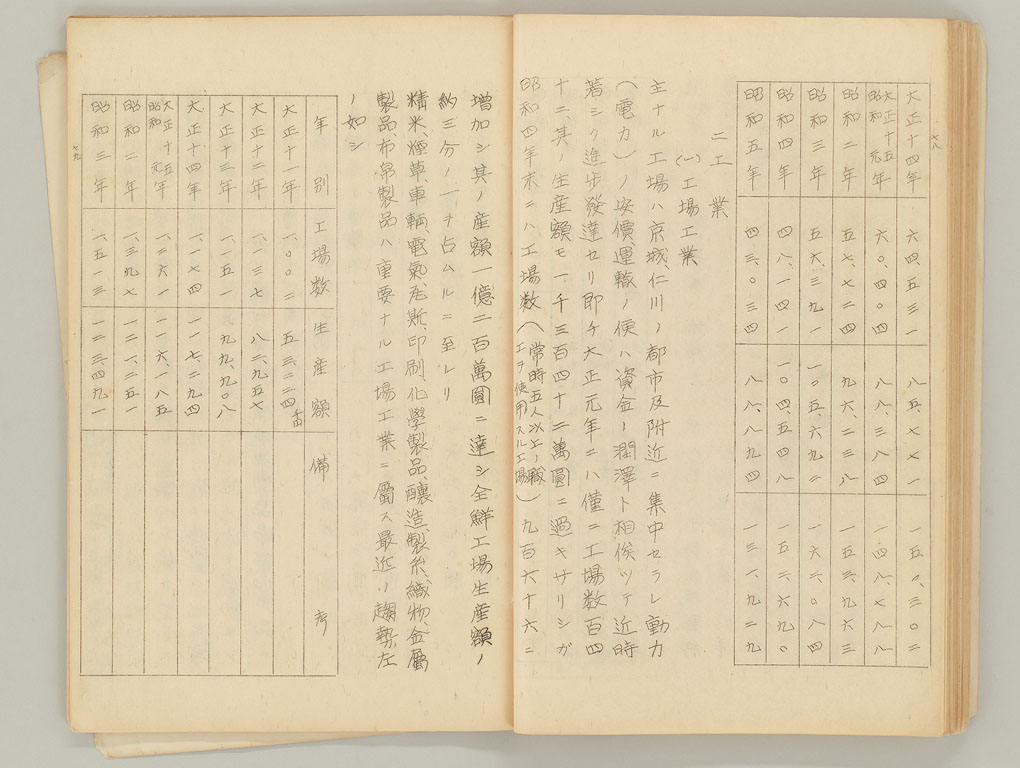 七八
大正十四年 六四、五三一 八五、七七一 一五〇、三〇二
大正十五 昭和元年 六〇、四〇四 八八、三八四 一四八、七八八
昭和二年 五七、七二四 九六、二三八 一五三、九六三
昭和三年 五六、三九一 一〇五、六九二 一六二、〇八四
昭和四年 四八、一四一 一〇四、五四八 一五二、六九〇
昭和五年 四三、〇三四 八八、八九四 一三一、九二九
二工業
(一)工場工業
主ナル工場ハ京城、仁川ノ都市及附近ニ集中セラレ動力
(電力)ノ安價、運輸ノ便ハ資金ノ潤澤ト相俟ツテ近時
著シク進歩發達セリ即チ大正元年ニハ僅ニ工場数百四
十二、其ノ生産額モ一千三百四十二萬圓ニ過キサリシガ
昭和四年末ニハ工場数(常時五人以上ノ職工ヲ使用スル工場)九百六十六ニ
増加シ其ノ産額一億二百萬圓ニ達シ全鮮工場生産額ノ
約三分ノ一ヲ占ムルニ至レリ
精米、煙草、車輌、電氣、瓦斯、印刷、化學製品、釀造、製糸、織物、金屬
製品、布帛製品ハ重要ナル工場工業ニ屬ス最近ノ趨勢左
ノ如シ
年別 工場数 生産額 備考
大正十一年 一、〇〇二 五三、二二四千円
大正十二年 一、一三七 八二、九五七
大正十三年 一、一五一 九九、九〇八
大正十四年 一、一七四 一一七、二九四
大正十五 昭和元年 一、二六一 一一六、一八五
昭和二年 一、三九七 一二一、二五一
昭和三年 一、五一三 一二三、四九一
七九